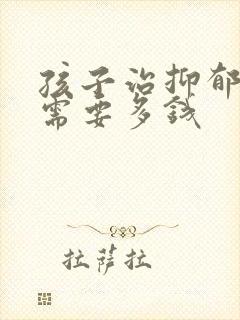 孩子治抑郁
需要多钱
拉萨拉